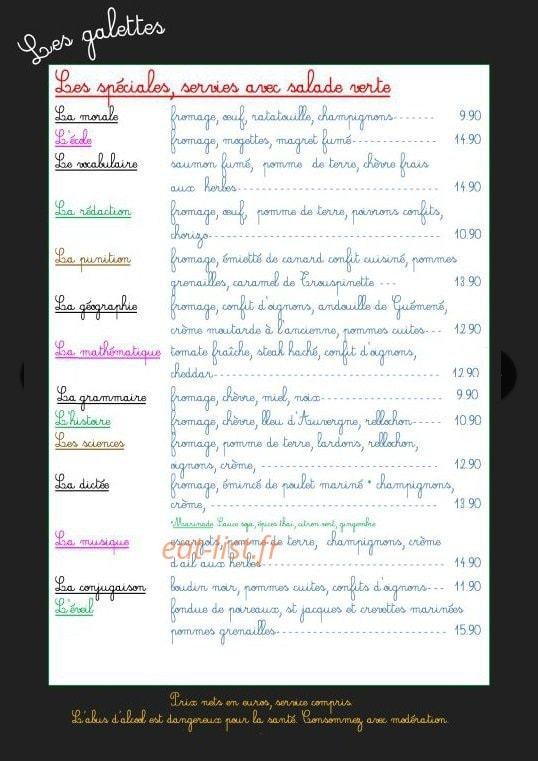 Les galettes
Les spéciales, servies avec salade verte
La morale fromage, œuf, ratatouille, champignons------- 9.90
L'école fromage, mogettes, magret fumé-------------- 14.90
Le vocabulaire saumon fumé, pomme de terre, chèvre frais
aux herbes--------------------------------- 14.90
La rédaction fromage, œuf, pomme de terre, poivrons confits,
chorizo------------------------------------- 10.90
La punition fromage, émietté de canard confit cuisiné, pommes
grenailles, caramel de Trouspinette --- 13.90
La géographie fromage, confit d'oignons, andouille de Guémené,
crème moutarde à l'ancienne, pommes cuites--- 12.90
La mathématique tomate fraîche, steak haché, confit d'oignons,
cheddar------------------------------------- 12.90
La grammaire fromage, chèvre, miel, noix------------------- 9.90
L'histoire fromage, chèvre, bleu d'Auvergne, reblochon---- 10.90
Les sciences fromage, pomme de terre, lardons, reblochon,
oignons, crème, ----------------------------- 12.90
La dictée fromage, émincé de poulet mariné * champignons,
crème, -------------------------------------- 13.90
*Marinade Sauce soja, épices thaï, citron vert, gingembre
La musique escargots, pomme de terre, champignons, crème
d'ail aux herbes----------------------------- 14.90
eat-list.fr
La conjugaison boudin noir, pommes cuites, confits d'oignons--- 11.90
L'éveil fondue de poireaux, st jacques et crevettes marinées
pommes grenailles---------------------------- 15.90
Prix nets en euros, service compris.
L'abus d'alcool est dangereux pour la santé. Consommez avec modération.